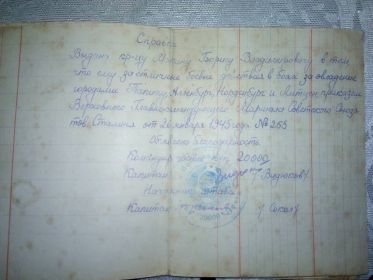 Справка
Выдана кр-цу Борису Владимировичу в том
что ему за отличные боевые действия в боях за овладение
городами Тапиау, Алленбург, Норденбург и Летцен приказом
Верховного Главнокомандующего Маршала Советского Союза
тов. Сталина от 26 января 1945 года № 255
Объявлена благодарность
Командир части п/п 20000
Капитан
Начальник штаба
Капитан /Сокол/